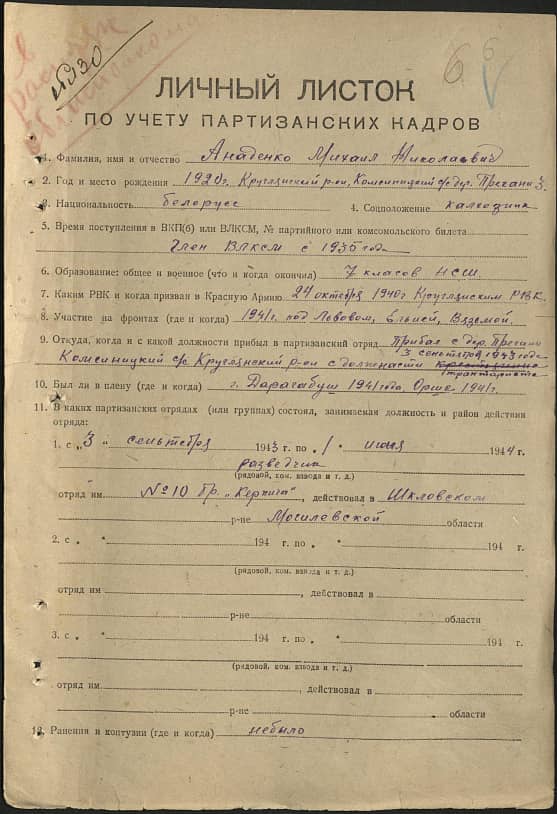 в
распоряж
№930
6 6
ЛИЧНЫЙ ЛИСТОК
ПО УЧЕТУ ПАРТИЗАНСКИХ КАДРОВ
1. Фамилия, имя и отчество Анаденко Михаил Николаевич
2. Год и место рождения 1920г. Круглянский р-он, Комсиницкий с/с дер.
3. Национальность белорусс 4. Соцположение калхозник
5. Время поступления в ВКП(б) или ВЛКСМ, № партийного или комсомольского билета
Член ВЛКСМ с 1935 года
6. Образование: общее и военное (что и когда окончил) 7 класов НСШ.
7. Каким РВК и когда призван в Красную Армию 24 октября 1940г Круглянским РВК.
8. Участие на фронтах (где и когда) 1941г. под Левовом, Ельней, Вязьмой.
9. Откуда, когда и с какой должности прибыл в партизанский отряд Прибыл с дер.
3 сентября 1943 года
Комсиницкий с/с Круглянский р-он с должности
10. Был ли в плену (где и когда) г. Дарагабуш 1941 года Орше 1941г.
11. В каких партизанских отрядах (или группах) состоял, занимаемая должность и район действия
отряда:
1. с „3" сентября 1943 г. по „1" июля 1944 г.
разведчик
(рядовой, ком. взвода и т. д.)
отряд им. №10 бр. „Кернига", действовал в Шкловском
р-не Могилевской области
2. с „ " 194 г. по „ " 194 г.
(рядовой, ком. взвода и т. д.)
отряд им. , действовал в
р-не области
3. с „ " 194 г. по „ " 194 г.
(рядовой, ком. взвода и т. д.)
отряд им. , действовал в
р-не области
12. Ранения и контузии (где и когда) небыло